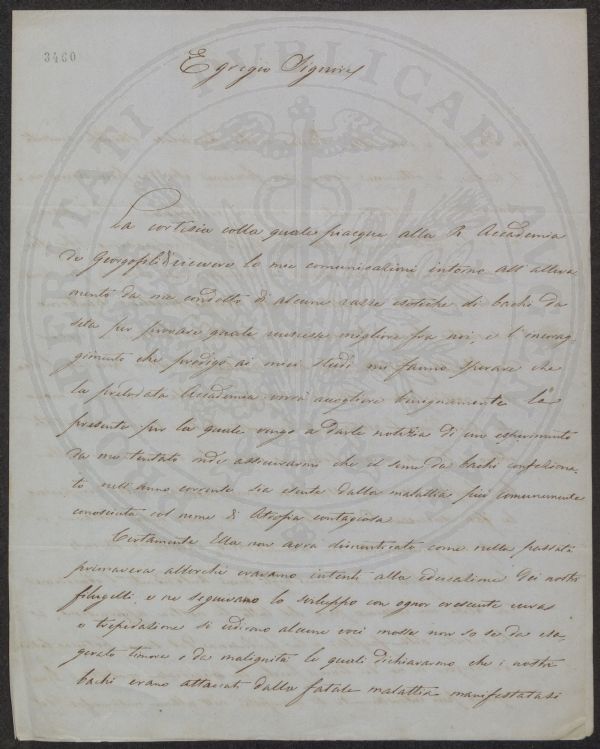 3460
Egregio Signore
La cortesia colla quale piacque alla R. Accademia
de Georgofili di ricevere le mie comunicazioni intorno all'alleva-
mento da me condotto di alcune razze esotiche di bachi da
seta per provare quale riuscisse migliore fra noi, e l'incorag-
gimento che prodigò ai miei studi mi fanno sperare che
la prelodata Accademia vorrà accogliere benignamente la
presente per la quale vengo a darle notizia di un esperimento
da me tentato onde assicurarmi che il seme da bachi confeziona-
to nell'anno corrente sia esente dalla malattia più comunemente
conosciuta col nome di Atrofia contagiosa.
Certamente Ella non avrà dimenticato come nella passata
primavera allorché eravamo intenti alla educazione dei nostri
filugelli, e ne seguivamo lo sviluppo con ognor crescente cura
e trepidazione si udirono alcune voci mosse non so se da esa-
gerato timore o da malignità le quali dichiararono che i nostri
bachi erano attaccati dalla fatale malattia manifestatasi
PROSPERITATI PUBLICAE AUGENDAE